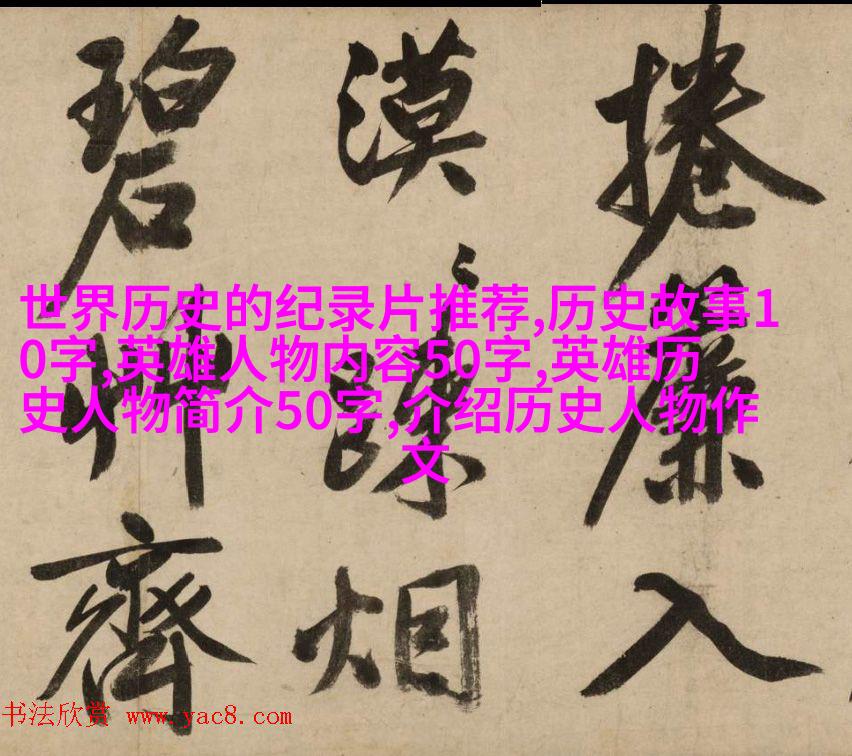 捲簾入
漠〻踈烟
碧艸齊
世界历史的纪录片推荐,历史故事1
0字,英雄人物内容50字,英雄历
史人物简介50字,介绍历史人物作
文
书法欣赏 www.yac8.com